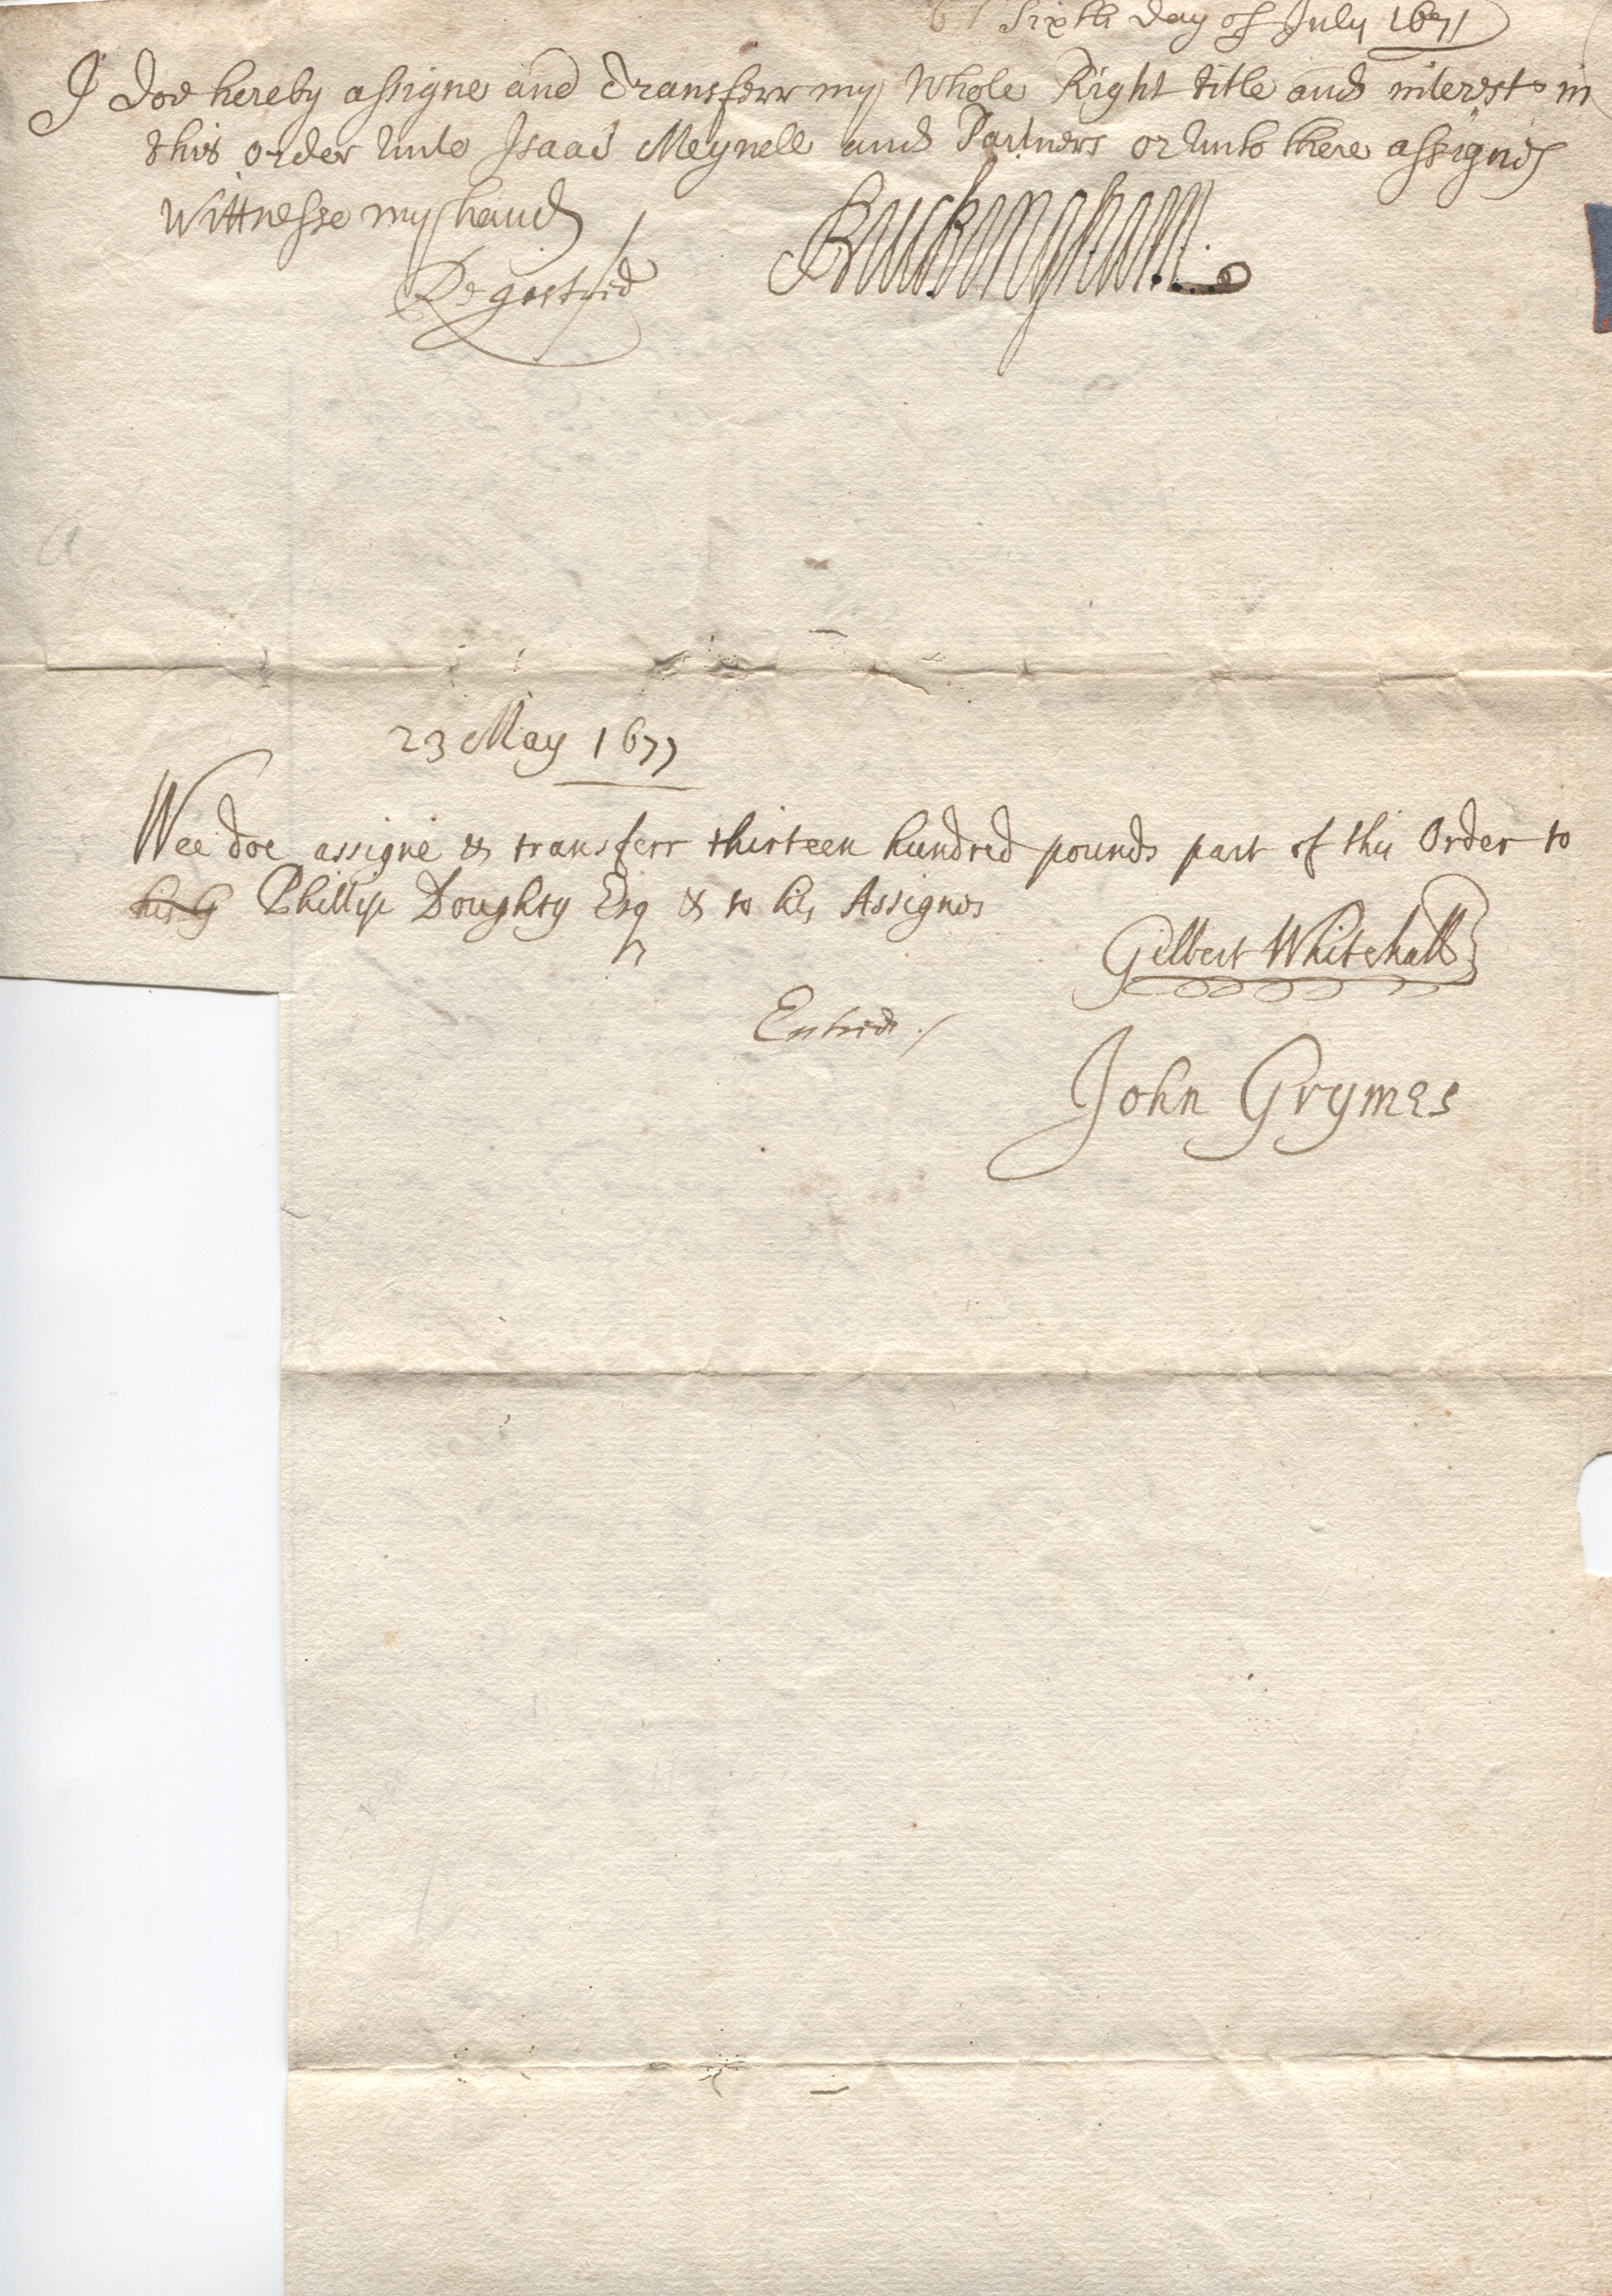 Sixth day of July 1671
I doe hereby assigne and transferr my whole Right title and interest in
this order unto Isaac Meynell and Partners or unto there assignes
Wittnesse my hand
Buckingham
Registred
23 May 1677
Wee doe assigne & transferr thirteen hundred pounds part of this Order to
his Phillip Doughty Esq & to his Assignes
Gilbert Whitehall
Entred
John Grymes